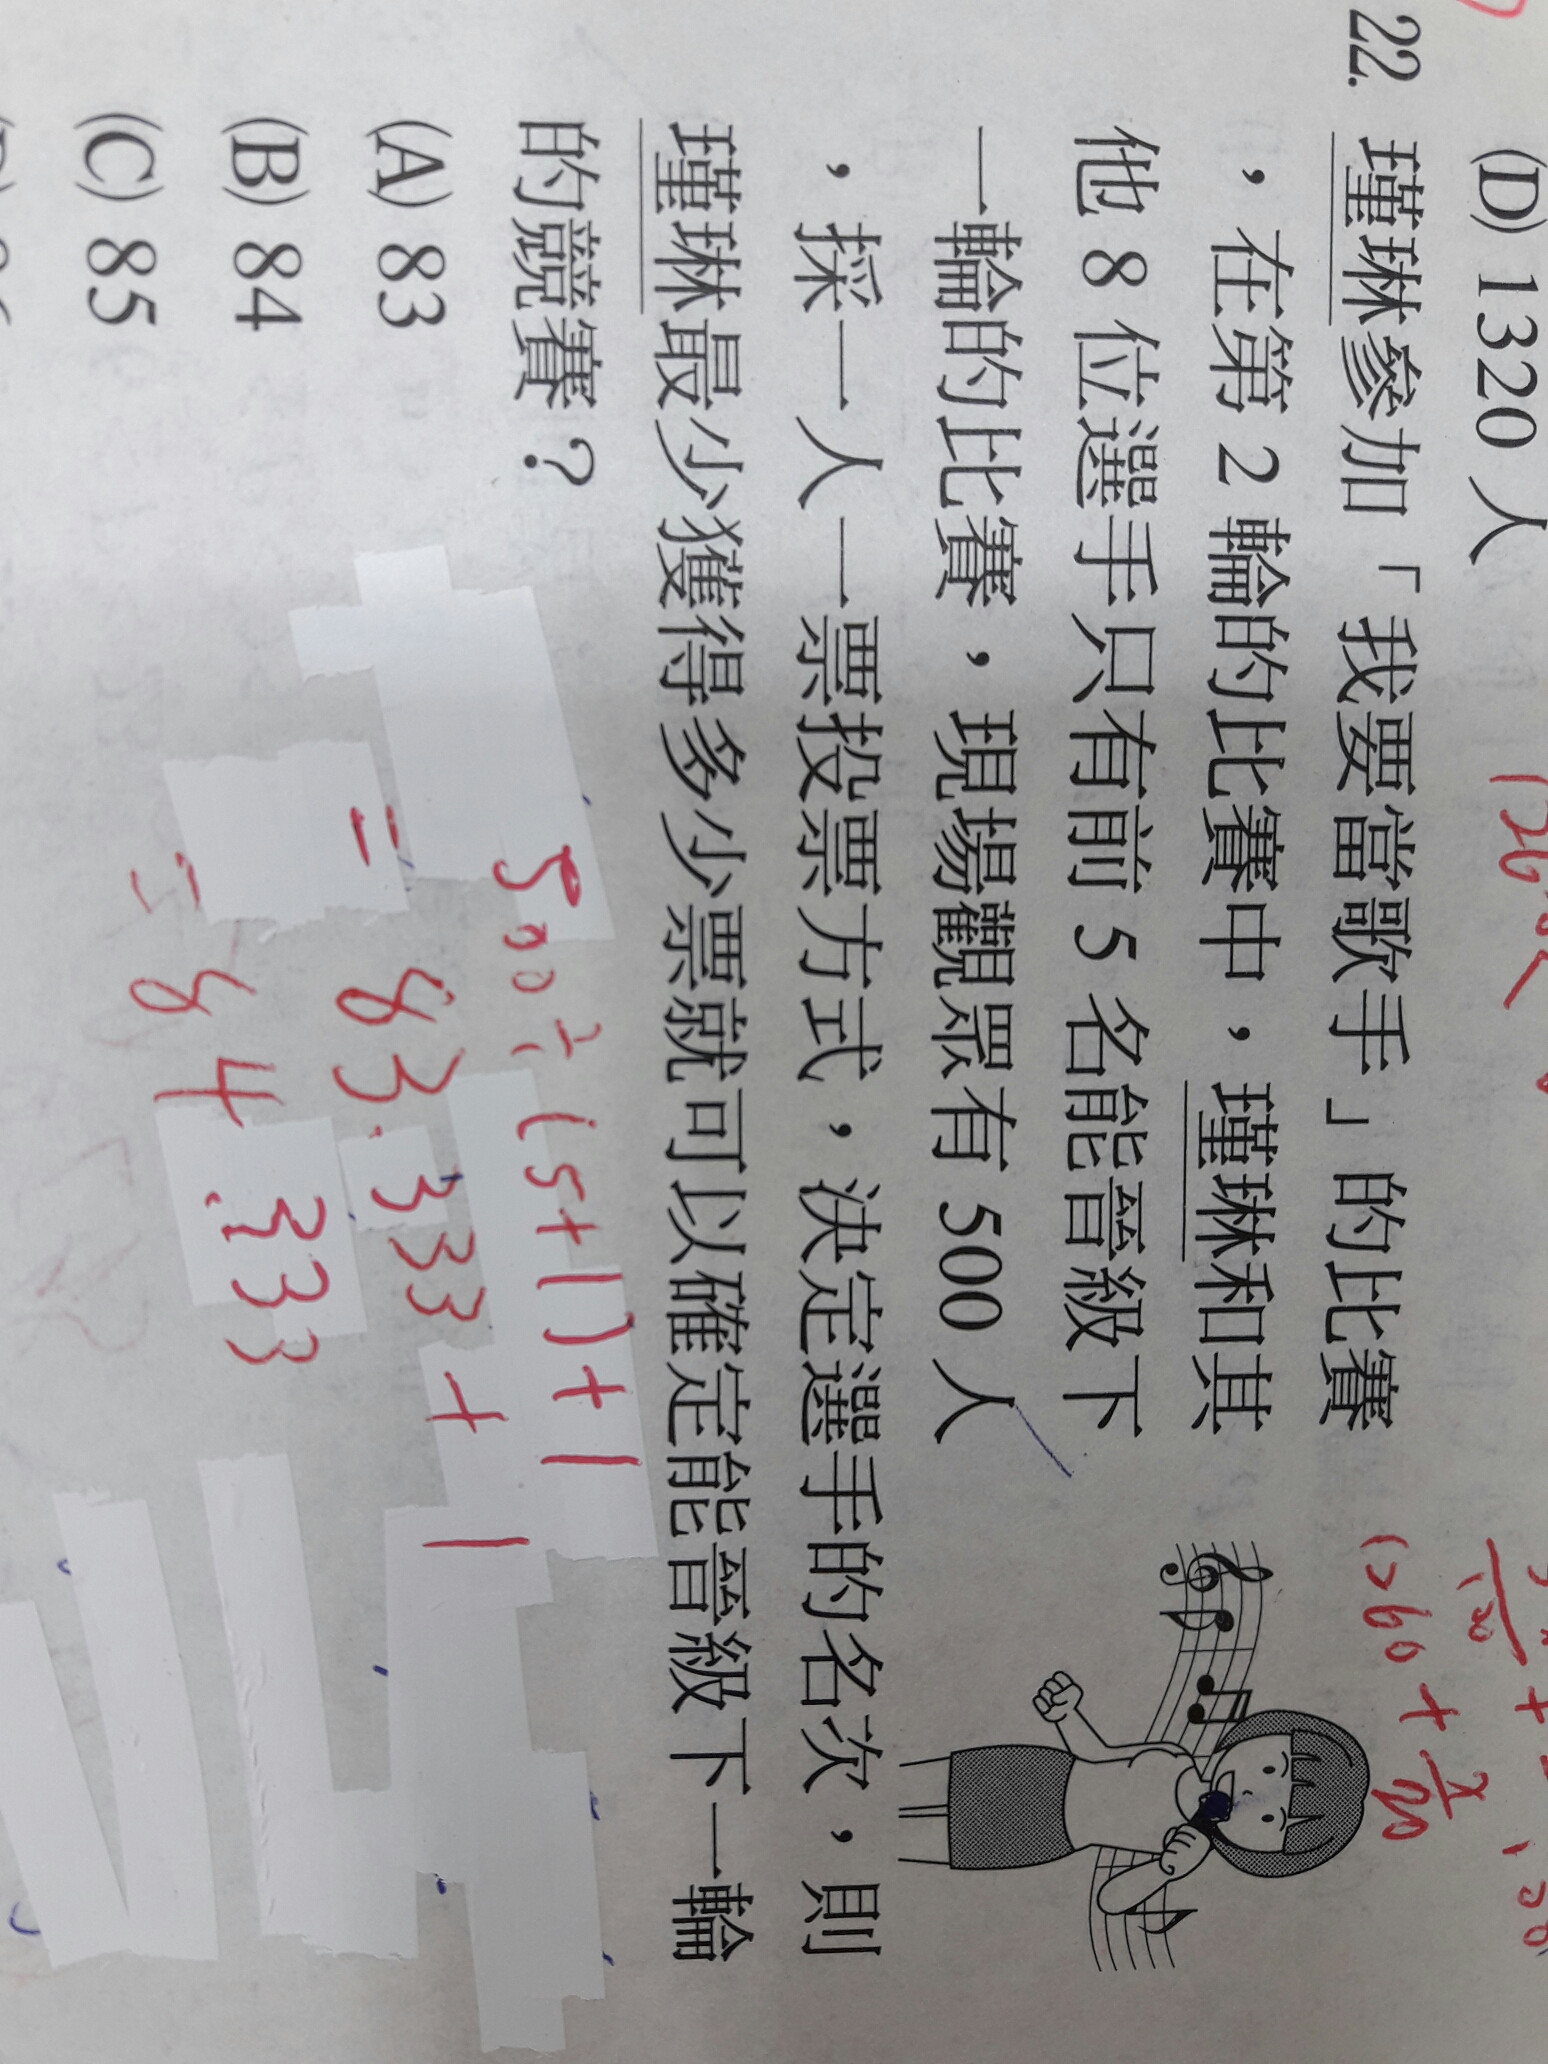 (D) 1320 人
22. 瑾琳參加「我要當歌手」的比賽
，在第 2 輪的比賽中，瑾琳和其
他 8 位選手只有前 5 名能晉級下
一輪的比賽，現場觀眾有 500 人
，採一人一票投票方式，決定選手的名次，則
瑾琳最少獲得多少票就可以確定能晉級下一輪
的競賽？
(A) 83
(B) 84
(C) 85
500÷(5+1)+1
= 83.333+1
= 84.333